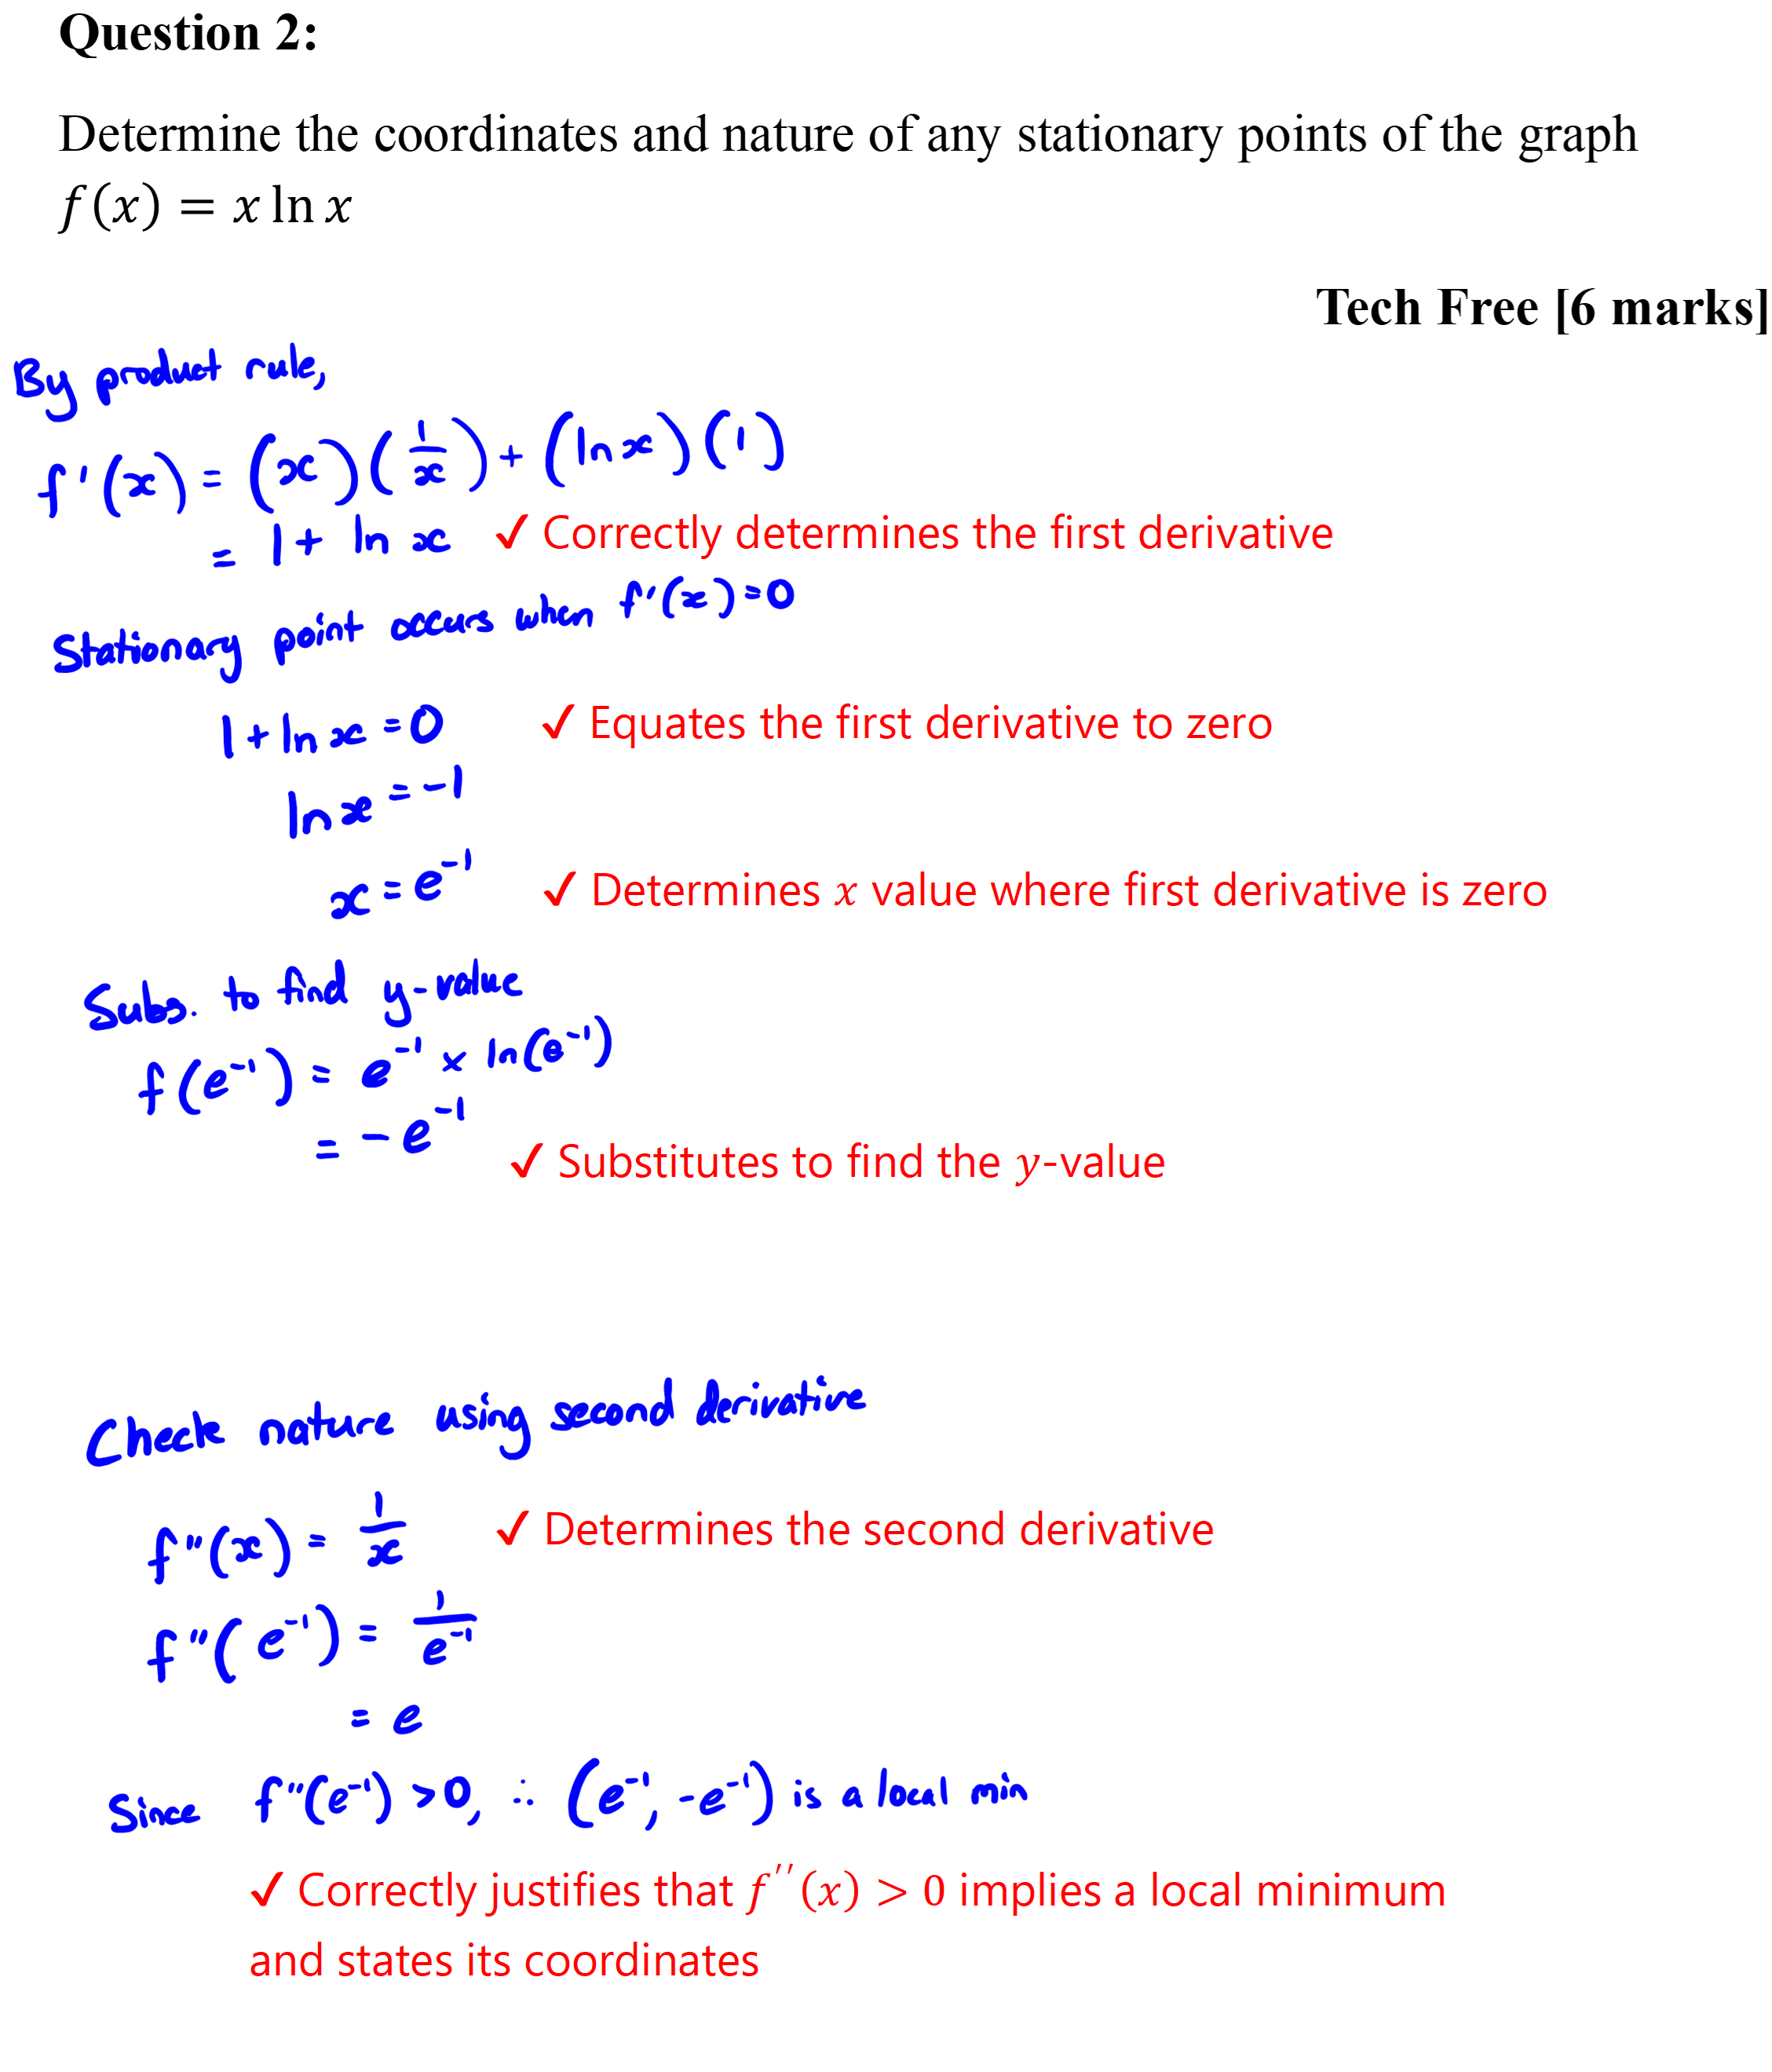 Question 2:
Determine the coordinates and nature of any stationary points of the graph
f(x) = x ln x
Tech Free [6 marks]
By product rule,
f'(x) = (x)(1/x) + (ln x)(1)
= 1 + ln x ✓ Correctly determines the first derivative
Stationary point occurs when f'(x)=0
1 + ln x = 0 ✓ Equates the first derivative to zero
ln x = -1
x = e⁻¹ ✓ Determines x value where first derivative is zero
Subs. to find y-value
f(e⁻¹) = e⁻¹ × ln(e⁻¹)
= -e⁻¹
✓ Substitutes to find the y-value
Check nature using second derivative
f''(x) = 1/x ✓ Determines the second derivative
f''(e⁻¹) = 1/e⁻¹
= e
Since f''(e⁻¹) >0, ∴ (e⁻¹, -e⁻¹) is a local min
✓ Correctly justifies that f''(x) > 0 implies a local minimum
and states its coordinates